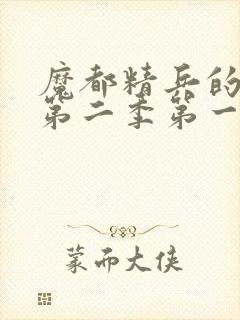 魔都精兵的
第二季第一
蒙而大侠